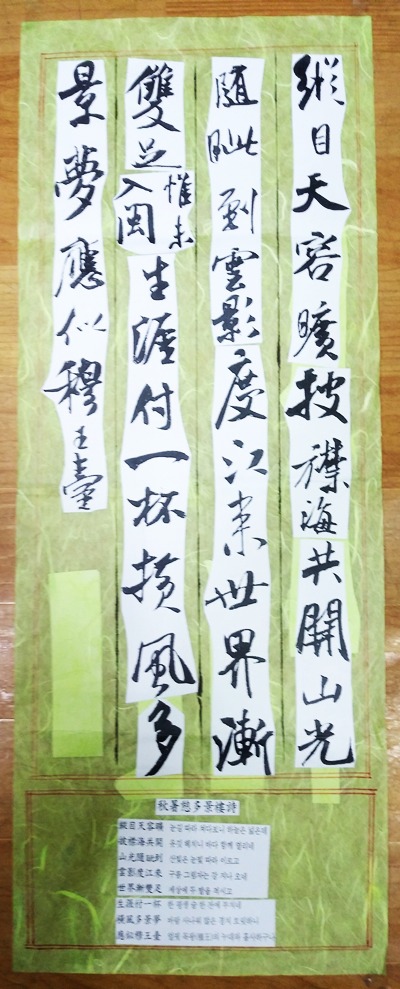 縱目天容曠披襟海共開山光
隨眦到雲影度江來世界漸
雙足惟未入閩生涯付一杯橫風多
景夢應似穆王臺
秋暑憩多景樓詩
縱目天容曠 눈길 따라 쳐다보니 하늘은 넓은데
披襟海共開 옷깃 헤치니 바다 함께 열리네
山光隨眦到 산빛은 눈빛 따라 이르고
雲影度江來 구름 그림자는 강 지나 오네
世界漸雙足 세상에 두 발을 적시고
生涯付一杯 한 평생 술 한 잔에 부치네
橫風多景夢 바람 사나워 많은 경치
應似穆王臺 목왕(穆王)의 누대와 흡사하구나